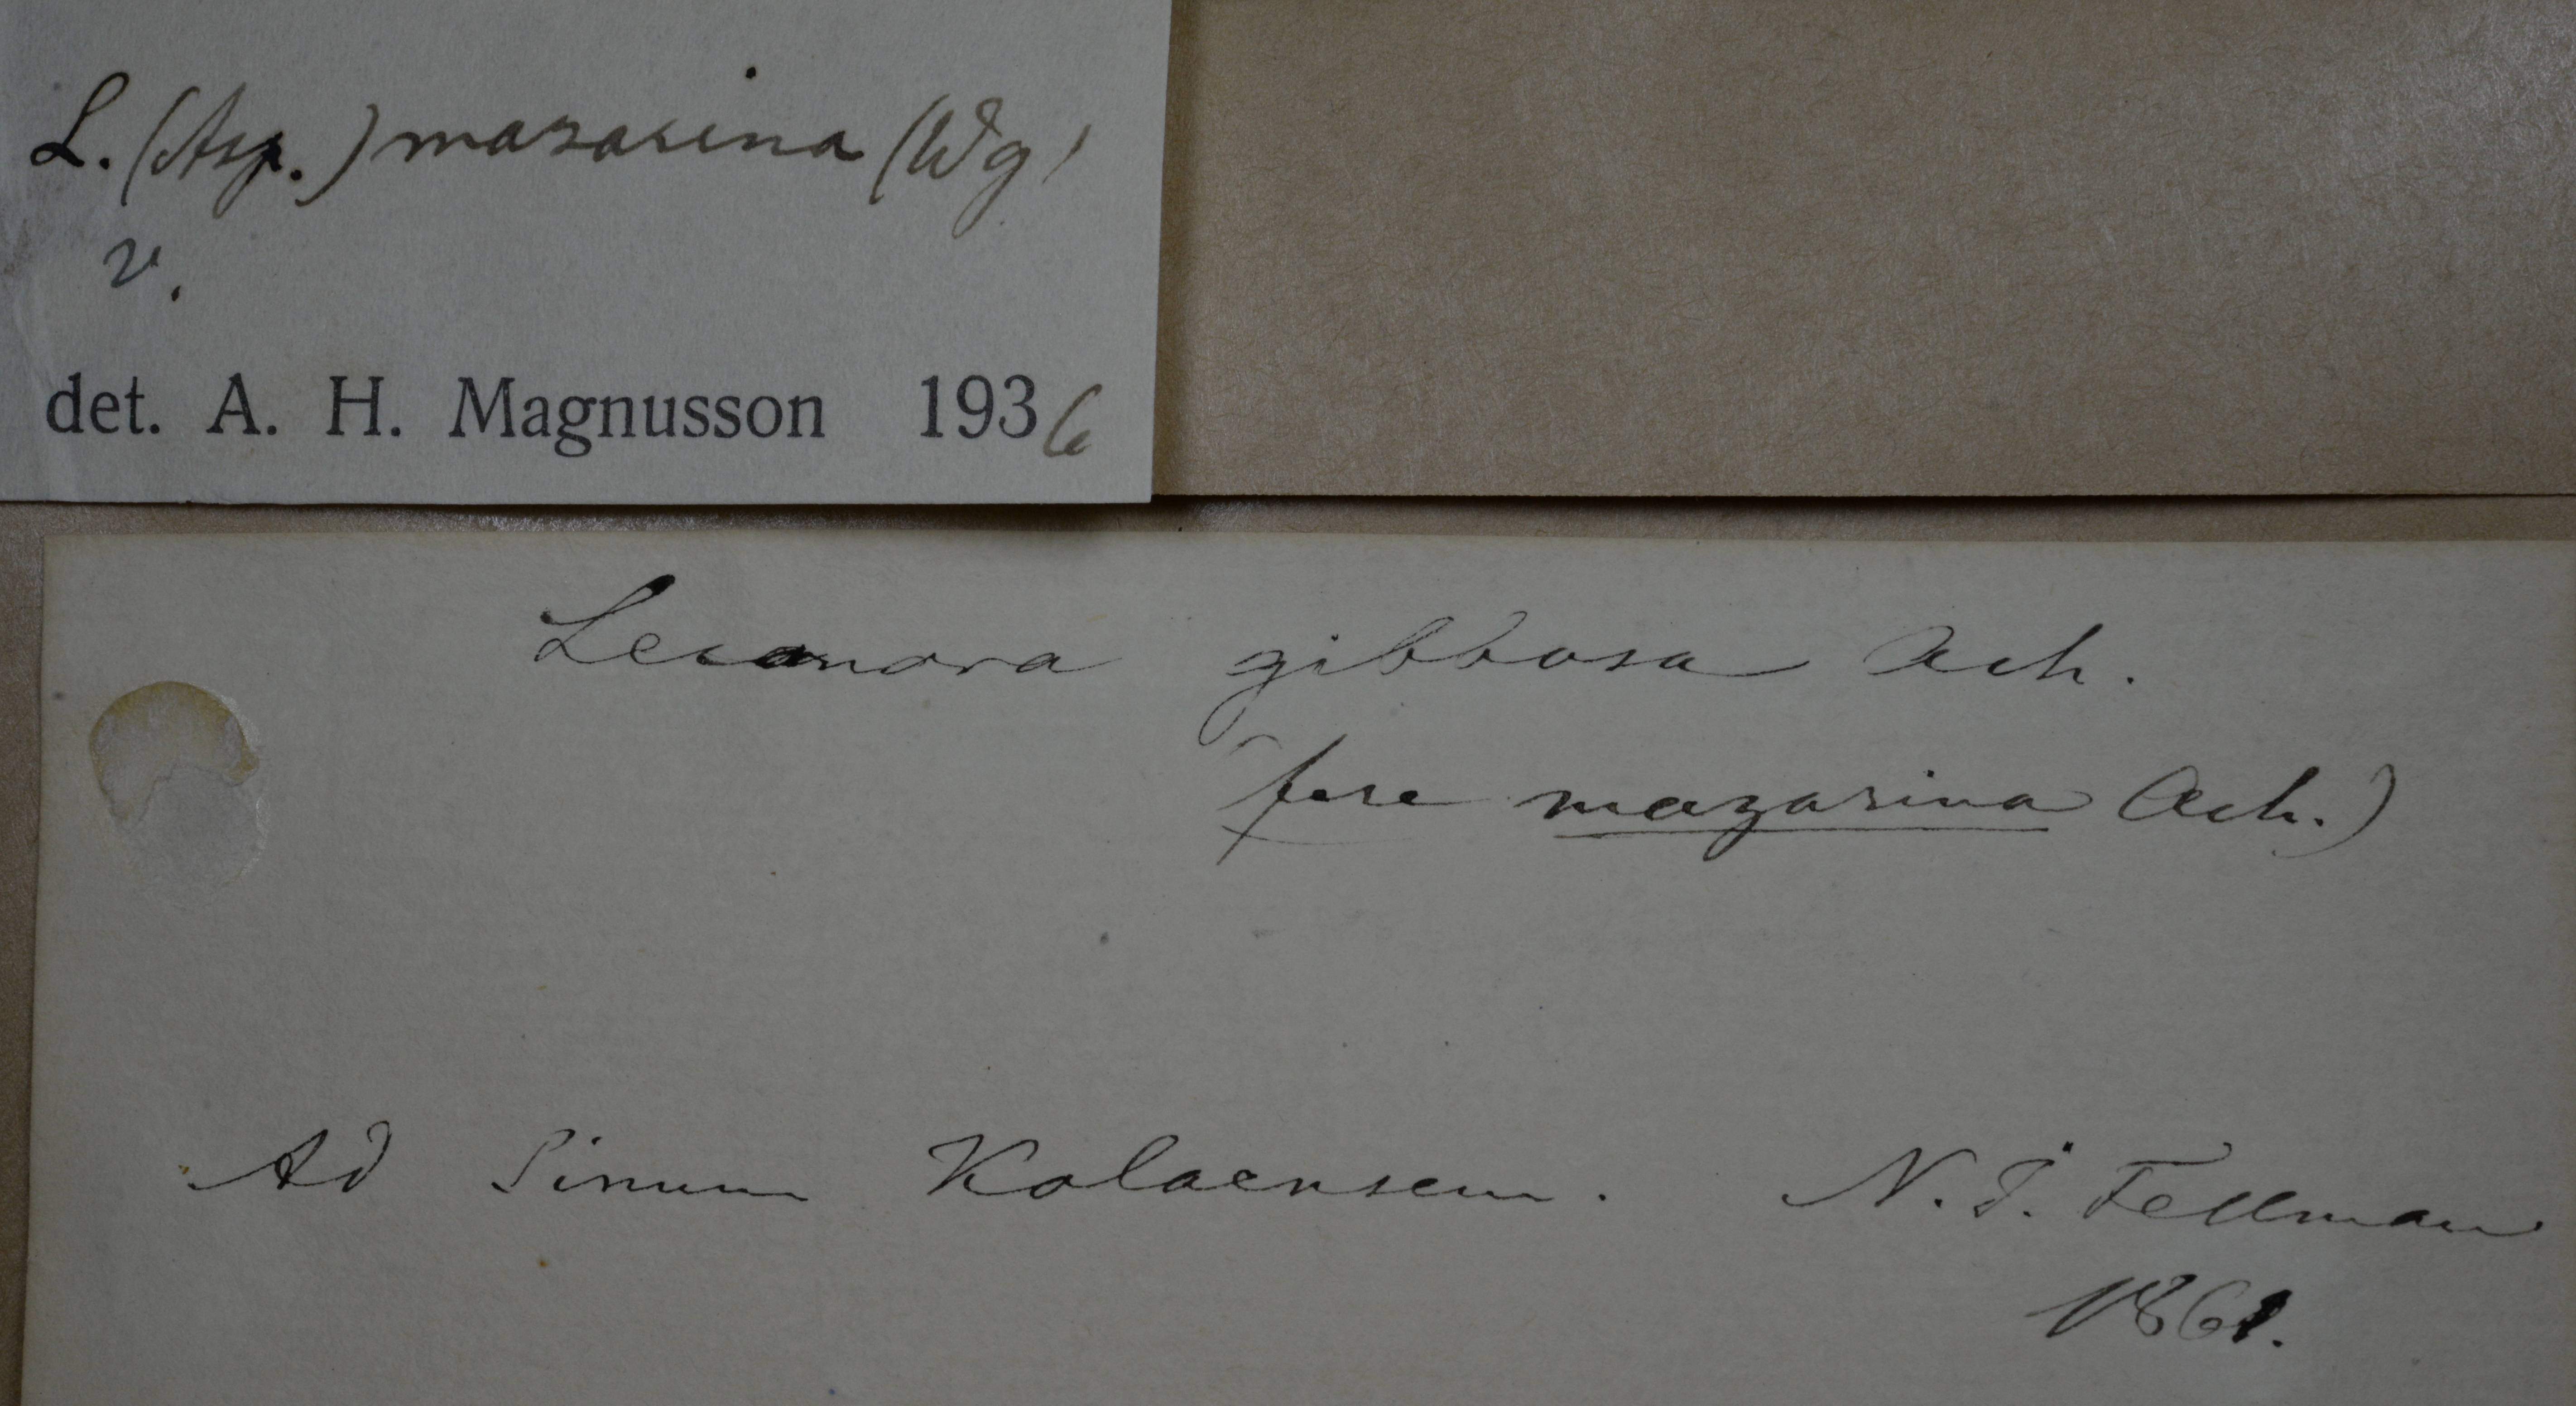 L. (Asp.) mazarina (Wg)
v.
det. A. H. Magnusson 1936
Lecanora gibbosa Ach.
(fere mazarina Ach.)
Ad Sinum Kolaensem. N. I. Fellman
1861.